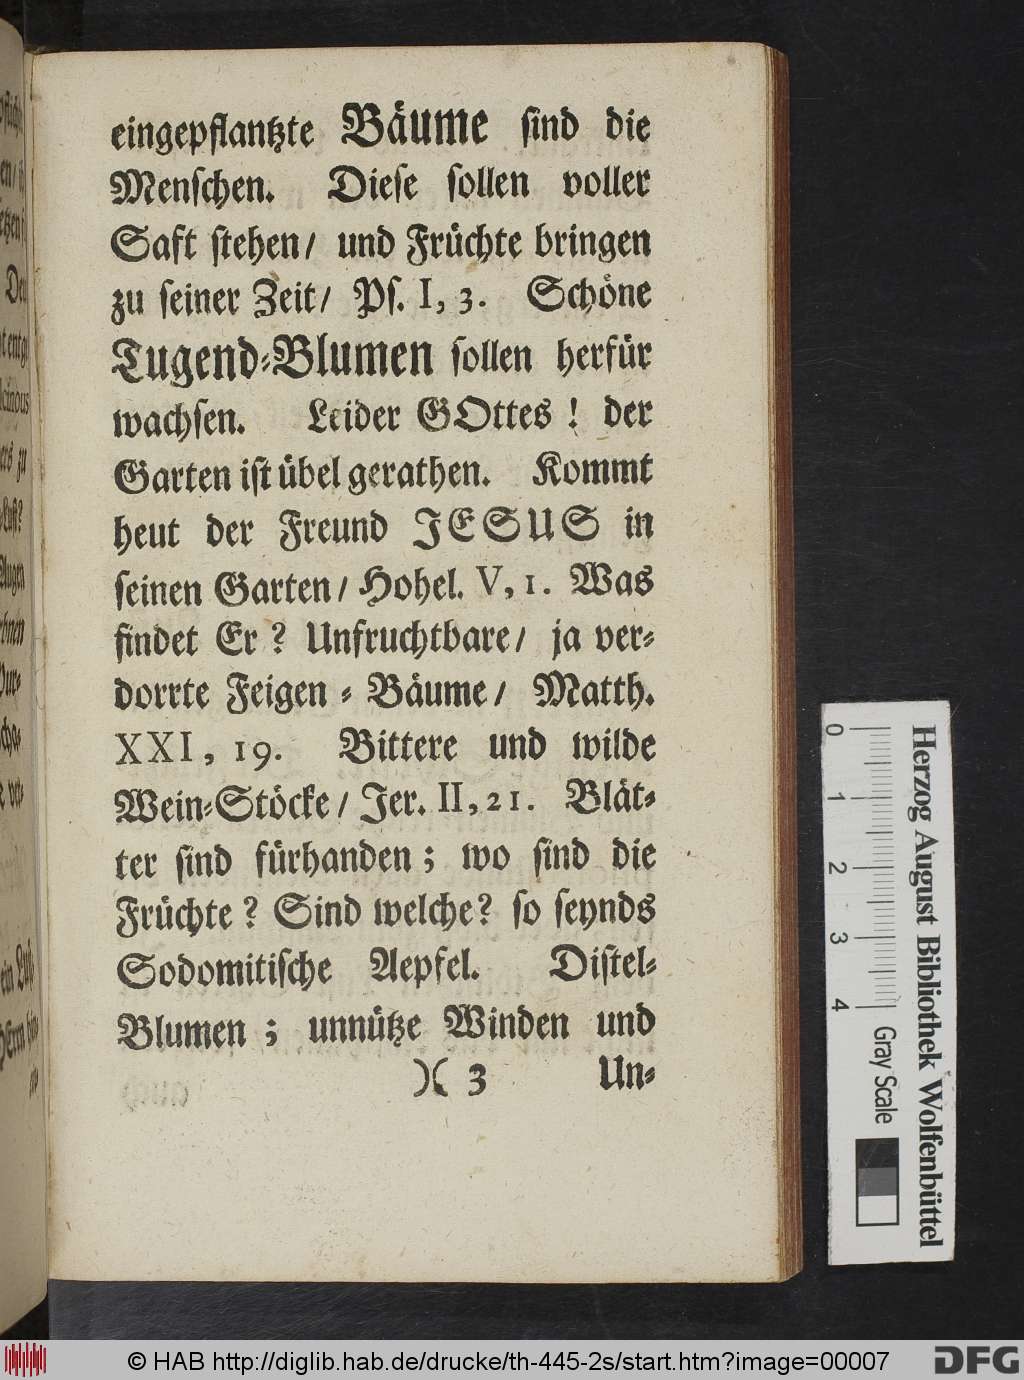 eingepflantzte Bäume sind die
Menschen. Diese sollen voller
Saft stehen/ und Früchte bringen
zu seiner Zeit/ Ps. I, 3. Schöne
Tugend-Blumen sollen herfür
wachsen. Leider GOttes! der
Garten ist übel gerathen. Kommt
heut der Freund JESUS in
seinen Garten/ Hohel. V, 1. Was
findet Er? Unfruchtbare/ ja ver-
dorrte Feigen-Bäume/ Matth.
XXI, 19. Bittere und wilde
Wein-Stöcke/ Jer. II, 21. Blät-
ter sind fürhanden; wo sind die
Früchte? Sind welche? so seynds
Sodomitische Aepfel. Distel-
Blumen; unnütze Winden und
)( 3 Un-
Herzog August Bibliothek Wolfenbüttel
0 1 2 3 4 Gray Scale
© HAB http://diglib.hab.de/drucke/th-445-2s/start.htm?image=00007
DFG